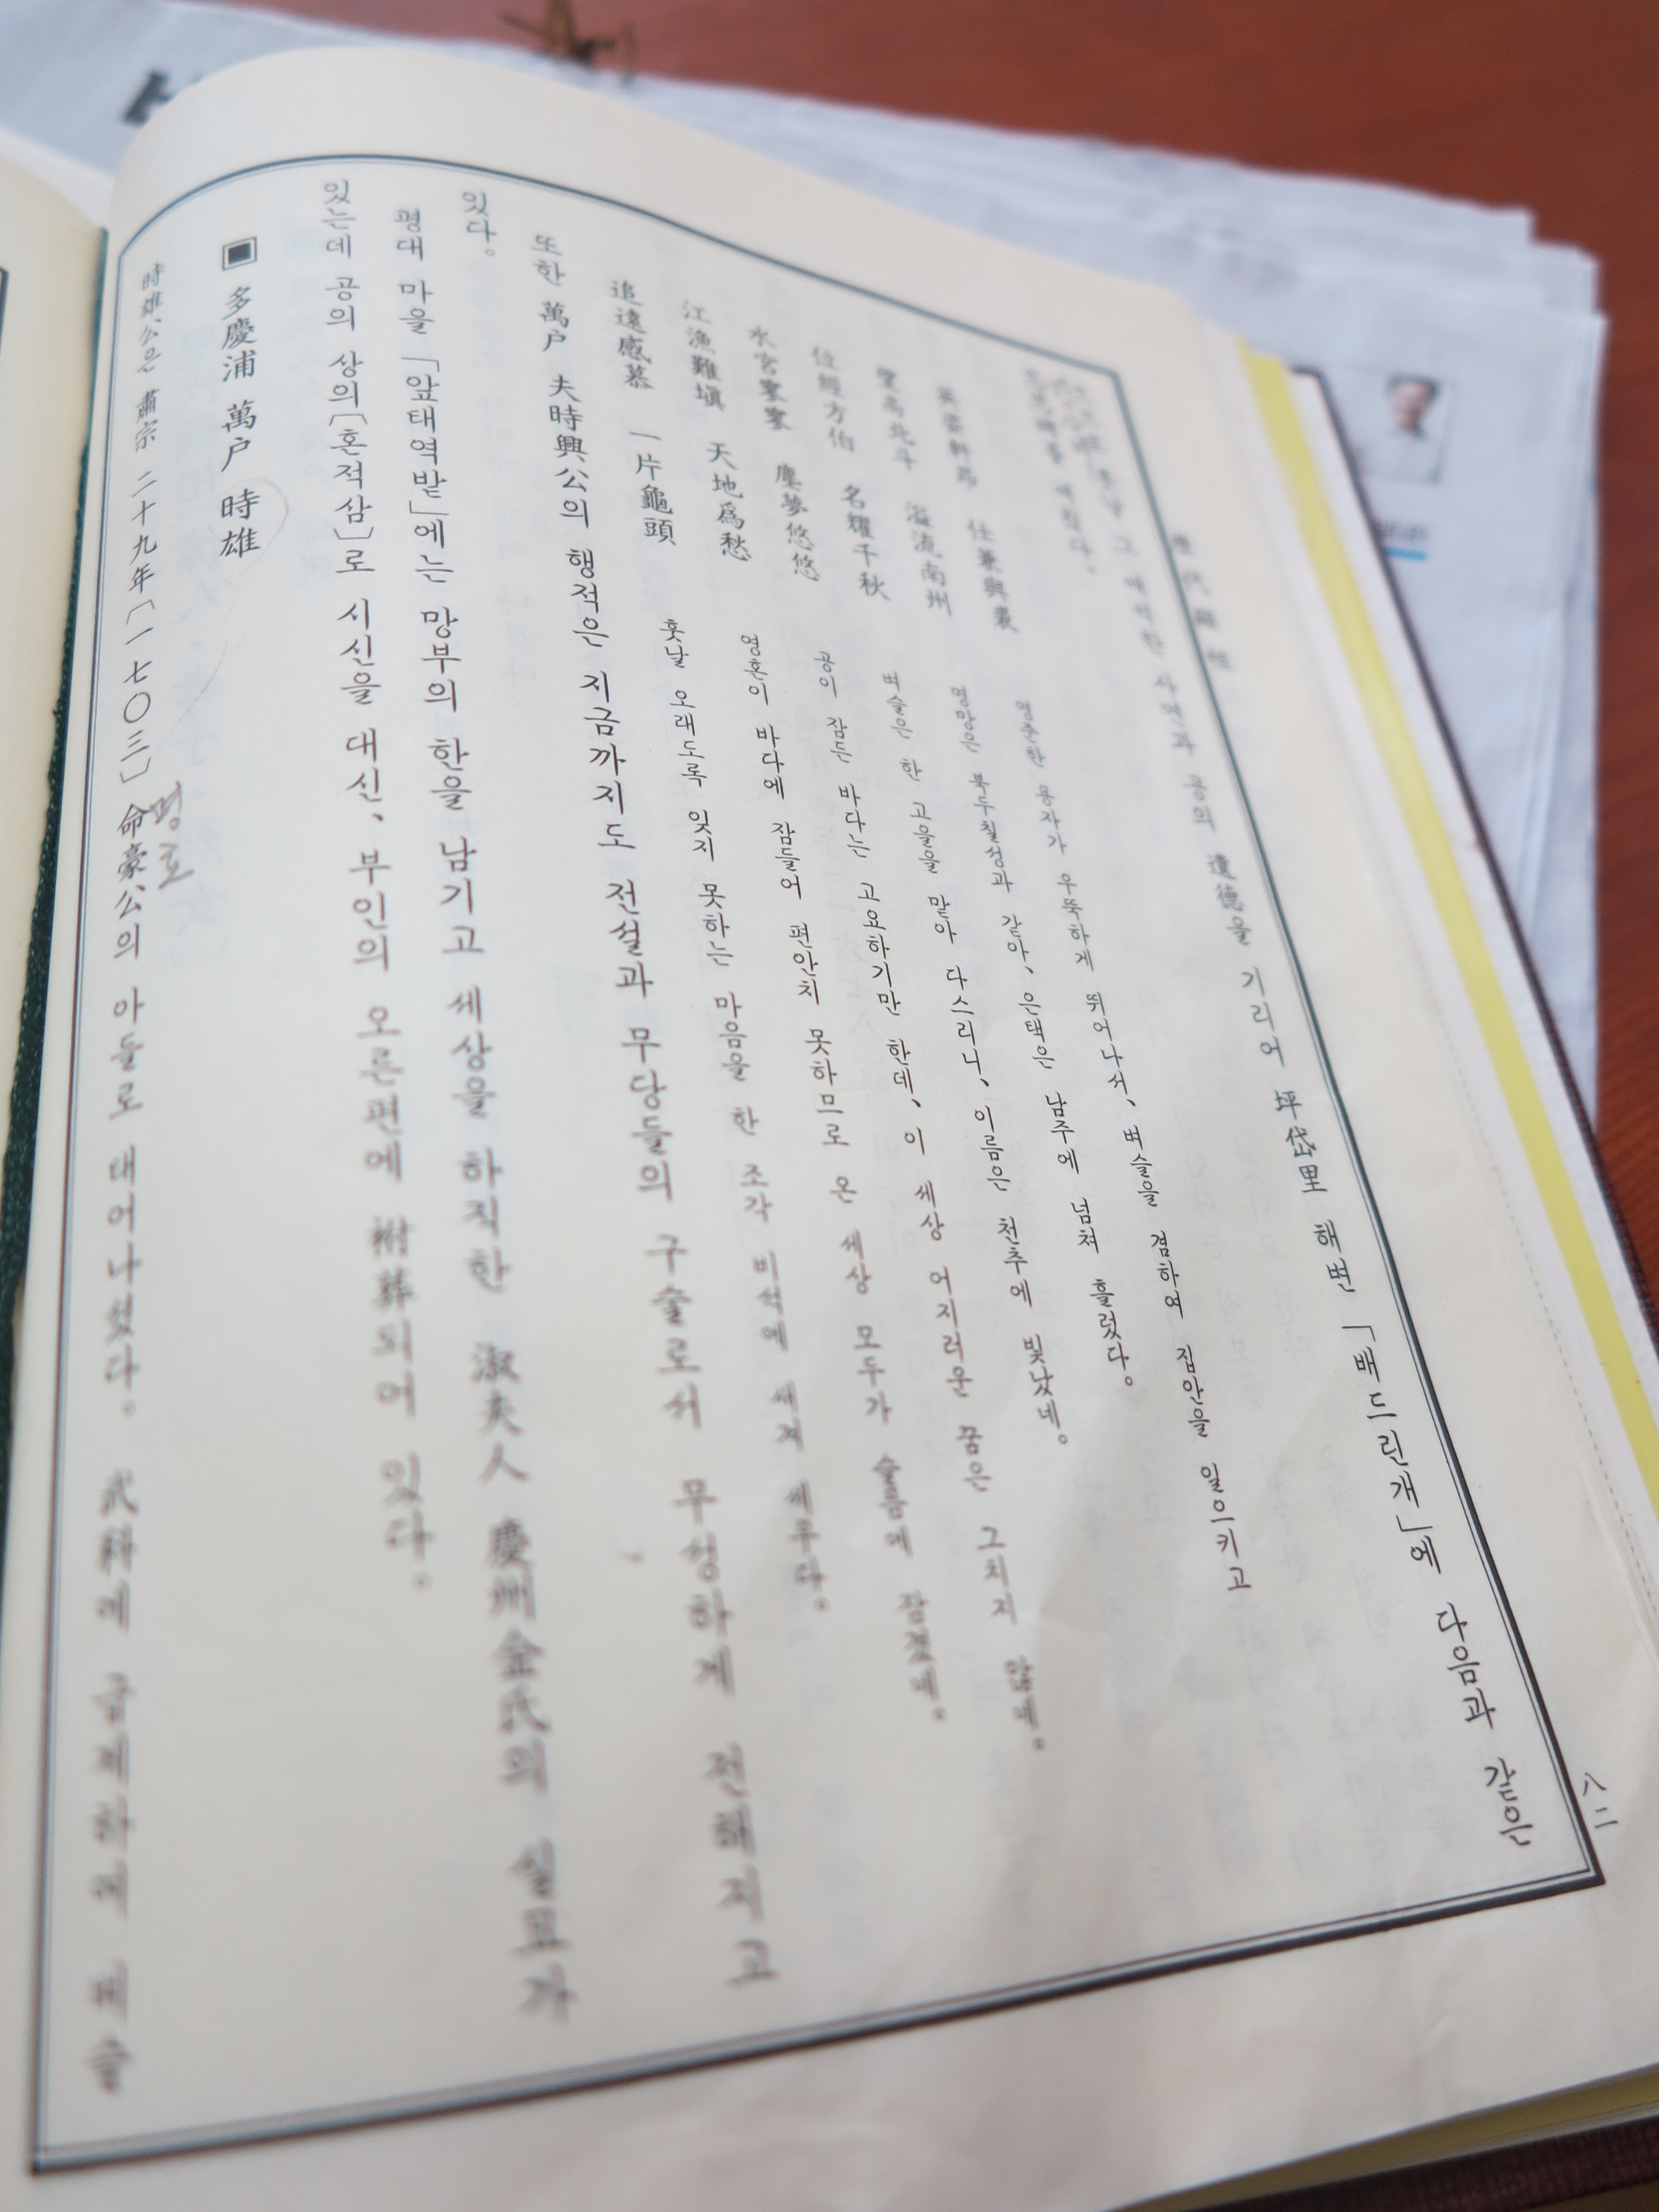 八二
훗날 그 애석한 사연과 공의 遺德을 기리어 坪岱里 해변 「배드린개」에 다음과 같은
세웠다.
英姿軒昂 仕兼興裏 영준한 용자가 우뚝하게 뛰어나서、벼슬을 겸하여 집안을 일으키고
望高北斗 溢流南州 명망은 북두칠성과 같아、은택은 남주에 넘쳐 흘렀다。
位經方伯 名耀千秋 벼슬은 한 고을을 맡아 다스리니、이름은 천추에 빛났네。
水宮 塵夢悠悠 공이 잠든 바다는 고요하기만 한데、이 세상 어지러운 꿈은 그치지 않네。
江漁難塡 天地爲愁 영혼이 바다에 잠들어 편안치 못하므로 온 세상 모두가 슬픔에 잠겼네。
追遠感慕 一片龜頭 훗날 오래도록 잊지 못하는 마음을 한 조각 비석에 새겨 세우다。
또한 萬戶 夫時興公의 행적은 지금까지도 전설과 무당들의 구술로서 무성하게 전해지고
있다。
평대 마을 「앞태역밭」에는 망부의 한을 남기고 세상을 하직한 淑夫人 慶州金氏의 실묘가
있는데 공의 상의〔혼적삼〕로 시신을 대신、부인의 오른편에 祔葬되어 있다。
▣ 多慶浦 萬戶 時雄
時雄公은 肅宗 二十九年〔一七〇三〕 命豪公의 아들로 태어나셨다。 武科에 급제하여 벼슬
명호